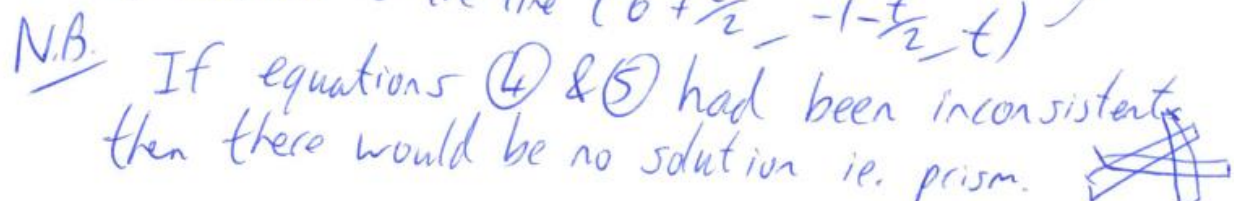 line (6 + t/2, -1-t/2, t)
N.B. If equations ④ & ⑤ had been inconsistent,
then there would be no solution ie. prism.